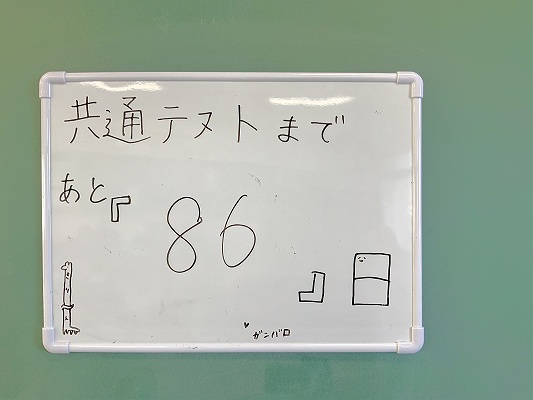 共通テストまで
あと『86』日
ガンバロ